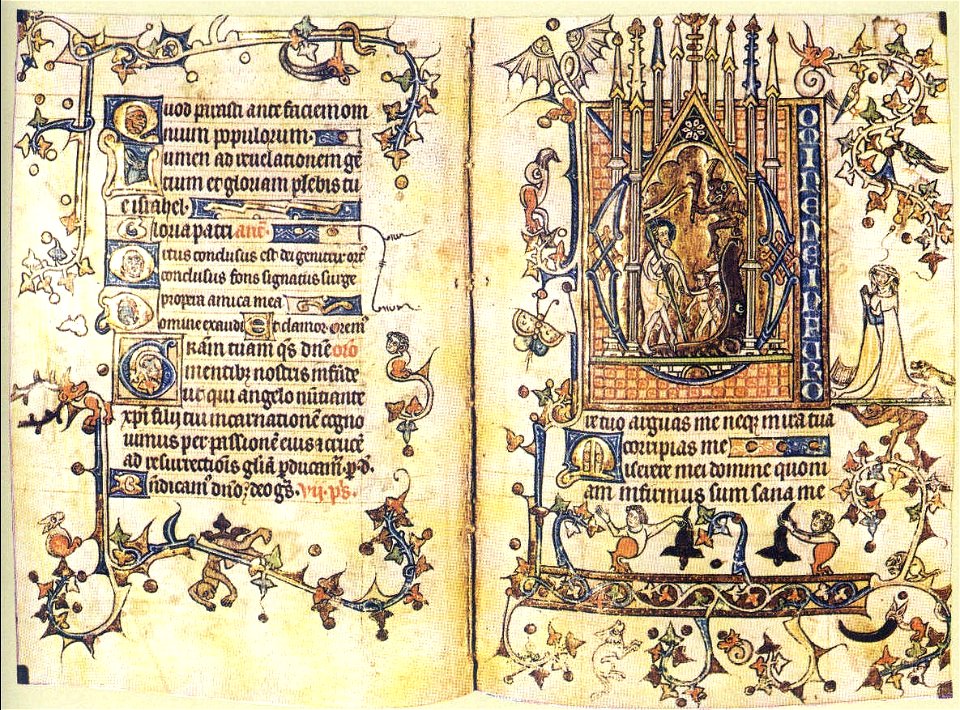 Quod parasti ante faciem om
nium populorum.
Lumen ad reuelationem ge
tium et gloriam plebis tu
e israhel.
Gloria patri ant.
Ortus conclusus est dei genitrix
conclusus fons signatus surge
propera amica mea
Domine exaudi Et clamor orem
Gram tuam qs dne oro
mentibus nostris infude
ut qui angelo nuciante
xpi filij tui incarnatione cogno
uimus per passione eius et cruce
ad resurrectiois gla pducam. p. d.
Bndicam dno deo gs. vij. ps.
DOMINE NE IN FURO
re tuo arguas me neq in ira tua
corripias me
Miserere mei domine quoni
am infirmus sum sana me